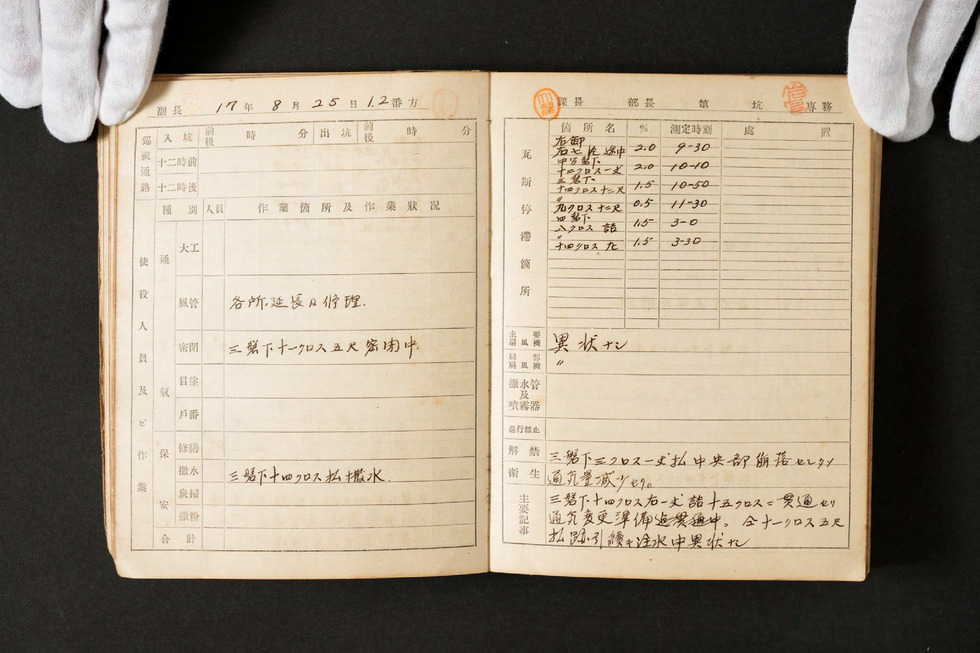 副長 17年 8月 25日 1.2番方
巡視通路 入坑 前後 時 分 出坑 前後 時 分
十二時前
十二時後
使役人員及ビ作業
種別 人員 作業箇所及作業狀況
通氣
大工
風管 各所延長及修理.
密閉 三盤下十一クロス五尺密閉中.
目塗
戶番
保安
修繕
撒水 三盤下十四クロス払撒水.
炭掃
撒粉
合計
課長 部長 第 坑 専務
瓦斯停滯箇所
箇所名 % 測定時刻 處置
右卸
右七片途中 2.0 9-30
十二クロス一丈 2.0 10-10
三盤下
十四クロス十二尺 1.5 10-50
〃
九クロス十二尺 0.5 11-30
四盤下
八クロス詰 1.5 3-0
〃
十四クロス九 1.5 3-30
主要扇風機 異狀ナシ
局部扇風機 〃
撒水管及噴霧器
昜行禁止
解禁
衛生
三盤下三クロス一丈払中央部崩落セシタメ
通気量減少セリ。
主要記事
三盤下十四クロス右一丈詰十五クロスニ貫通セリ
通気変更準備中。仝十一クロス五尺
払跡引續キ注水中異狀ナシ